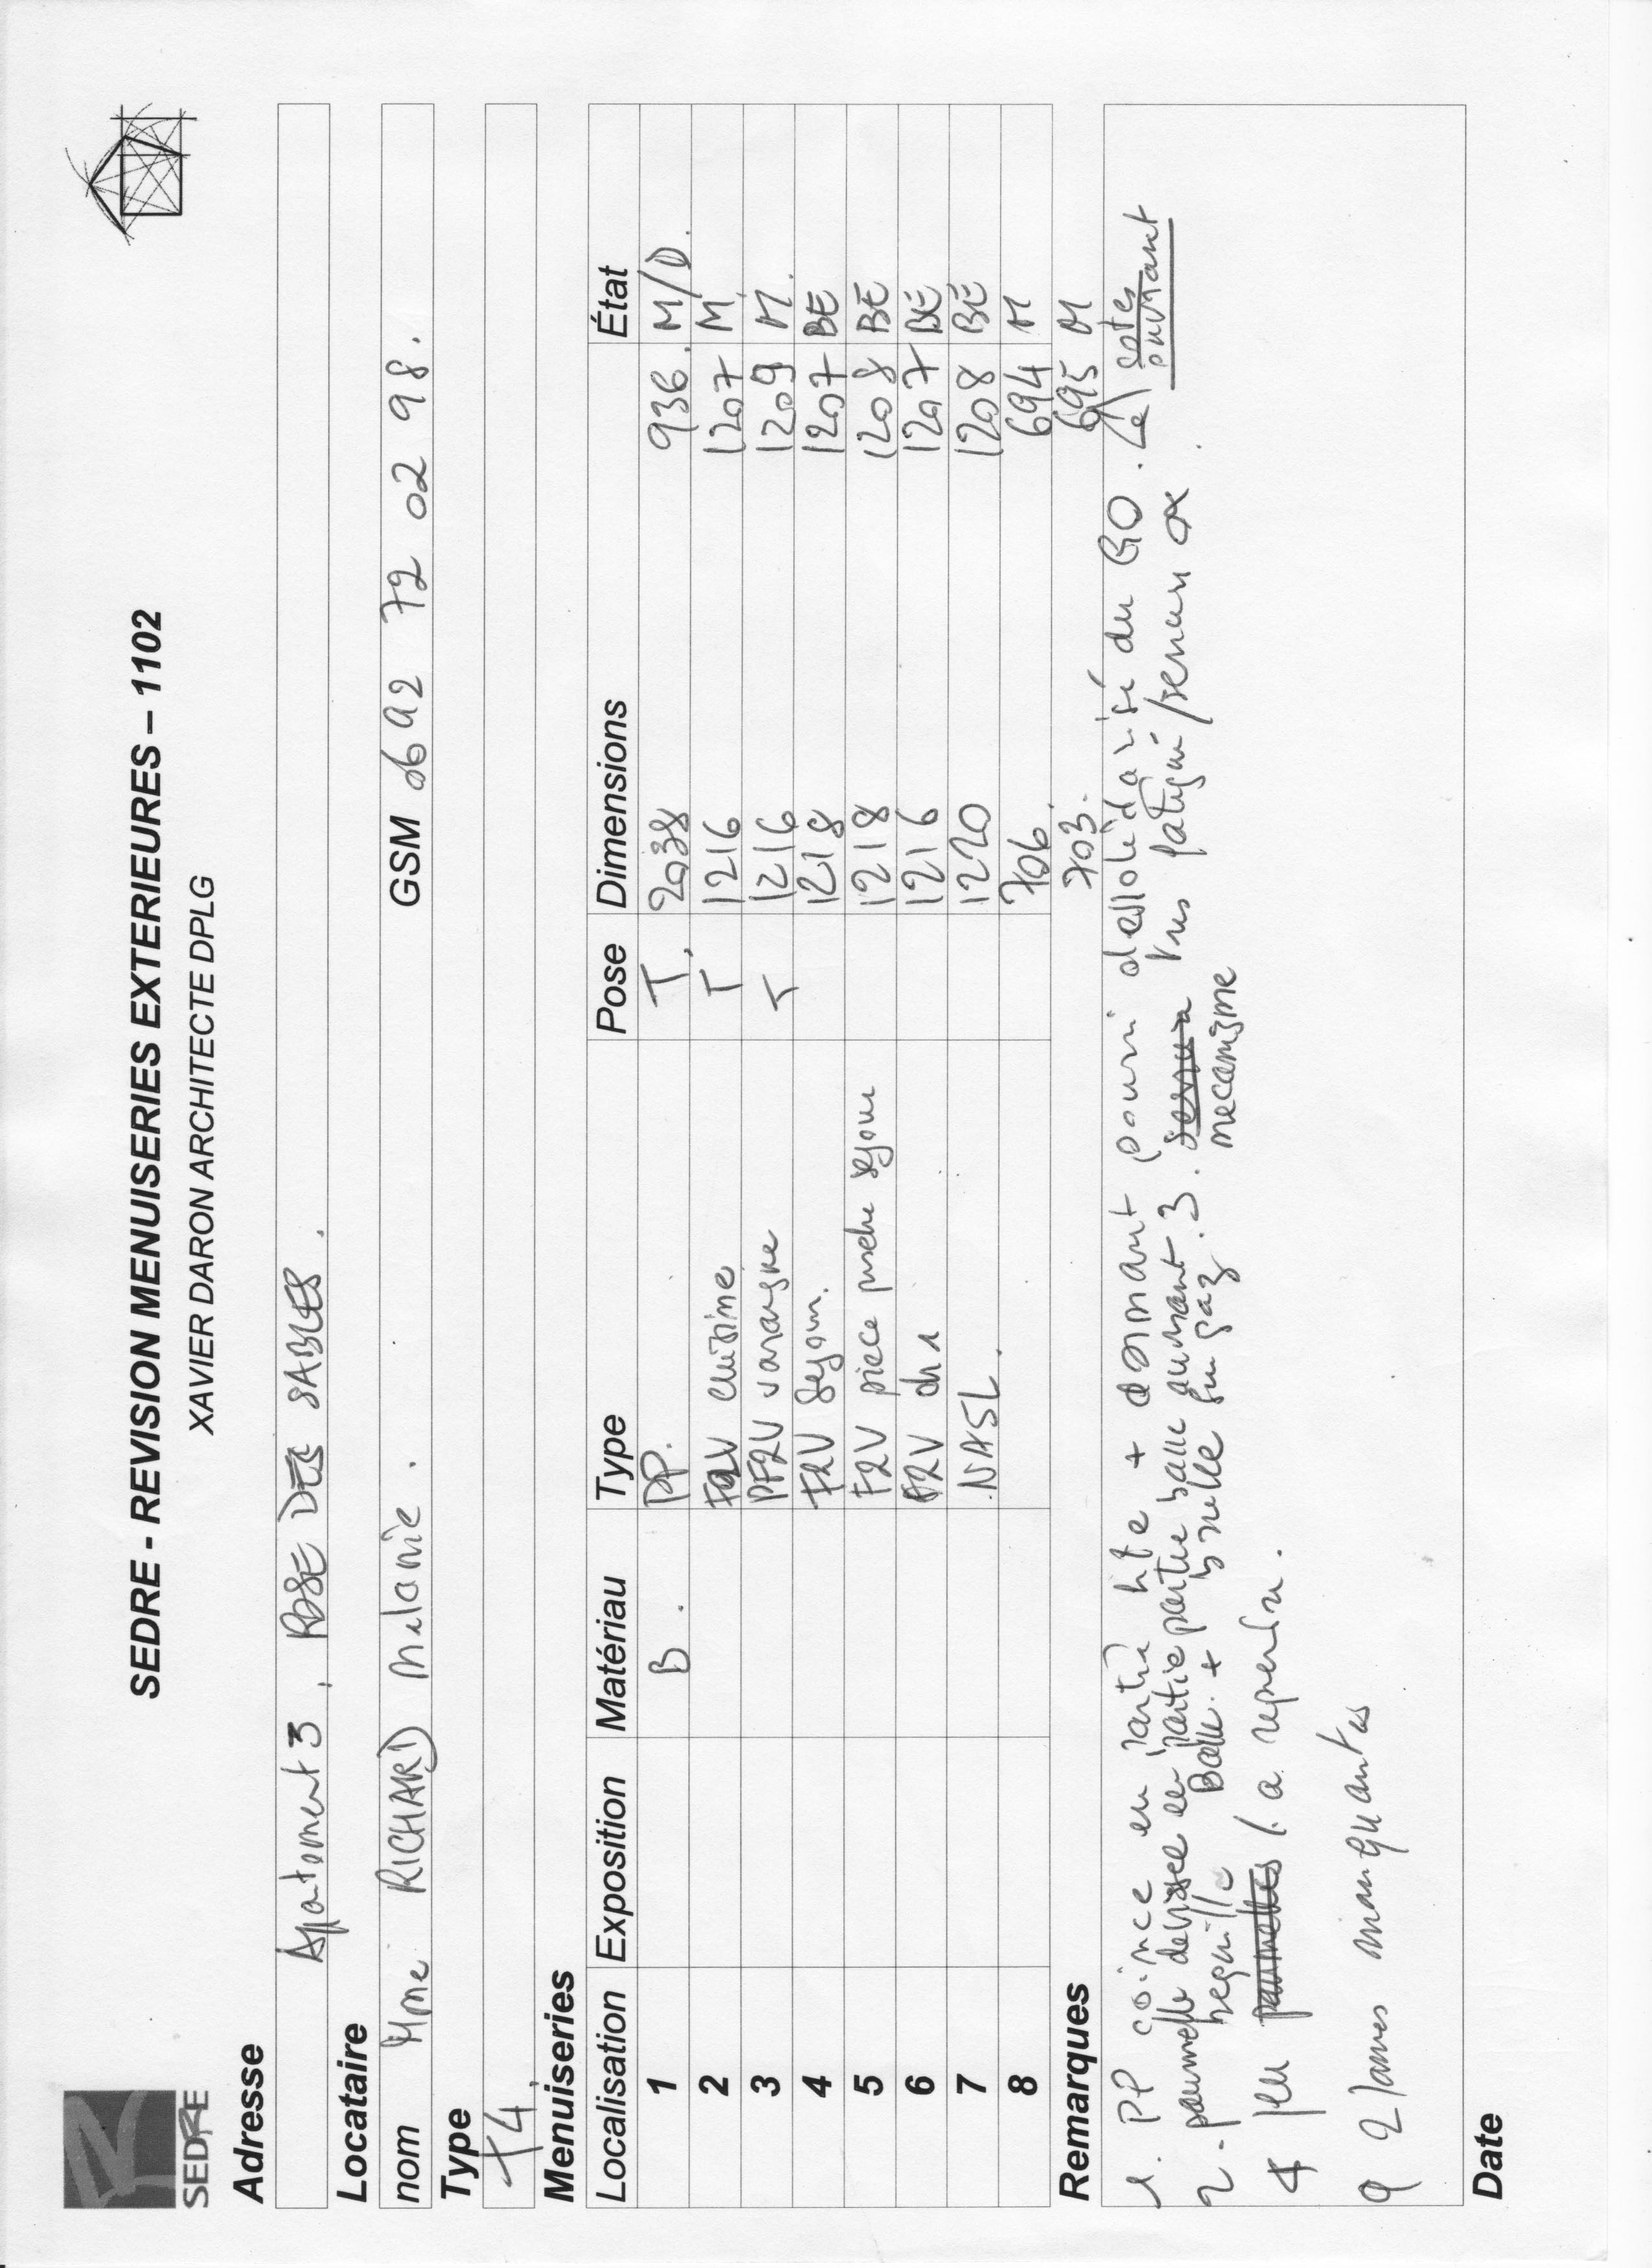 SEDRE
SEDRE - REVISION MENUISERIES EXTERIEURES – 1102
XAVIER DARON ARCHITECTE DPLG
Adresse
Appartement 3, ROSE DES SABLES.
Locataire
nom Mme RICHARD Mélanie. GSM 0692 72 02 98.
Type
T4
Menuiseries
Localisation Exposition Matériau Type Pose Dimensions État
1 B. PP. T. 2038 936. M/D.
2 F2V cuisine T 1216 1207 M
3 PF2V varangue T 1216 1209 M.
4 F2V Sejour. 1218 1207 BE
5 F2V piece proche sejour 1218 1208 BE
6 F2V ch1 1216 1207 BE
7 NASL. 1220 1208 BE
8 706 694 M
703. 695 M
Remarques
1. PP coince en partie hte + dormant pourri desolidarisé du GO. cotes ouvrant
2 - paumelle en partie partie basse ouvrant. 3. tres fatigué/
bequille + brulée gaz mecanisme
4 jeu paumelles a reprendre.
9 2 lames manquantes
Date